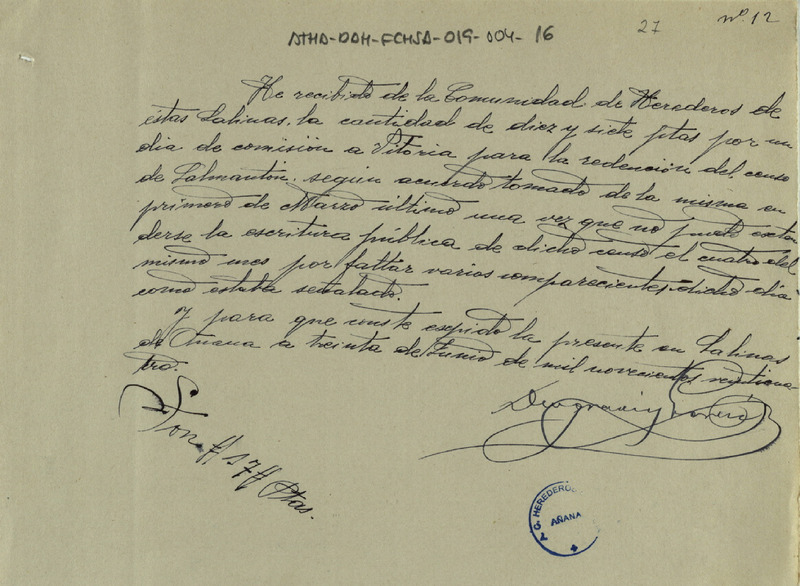 nº 12
27
ATHA-DAH-FCHSA-019-004-16
He recibido de la Comunidad de Herederos de
estas Salinas, la cantidad de diez y siete ptas por un
dia de comisión a Vitoria para la redención del censo
de Salmantón, según acuerdo tomado de la misma en
primero de Marzo último una vez que no pudo exten
derse la escritura pública de dicho censo el cuatro del
mismo mes por faltar varios comparecientes dicho dia
como estaba señalado.
Y para que conste espido la presente en Salinas
de Añana a treinta de Junio de mil novecientos veinticua
tro.
Deogracias
Son #17# Ptas.
C. HEREDEROS
AÑANA